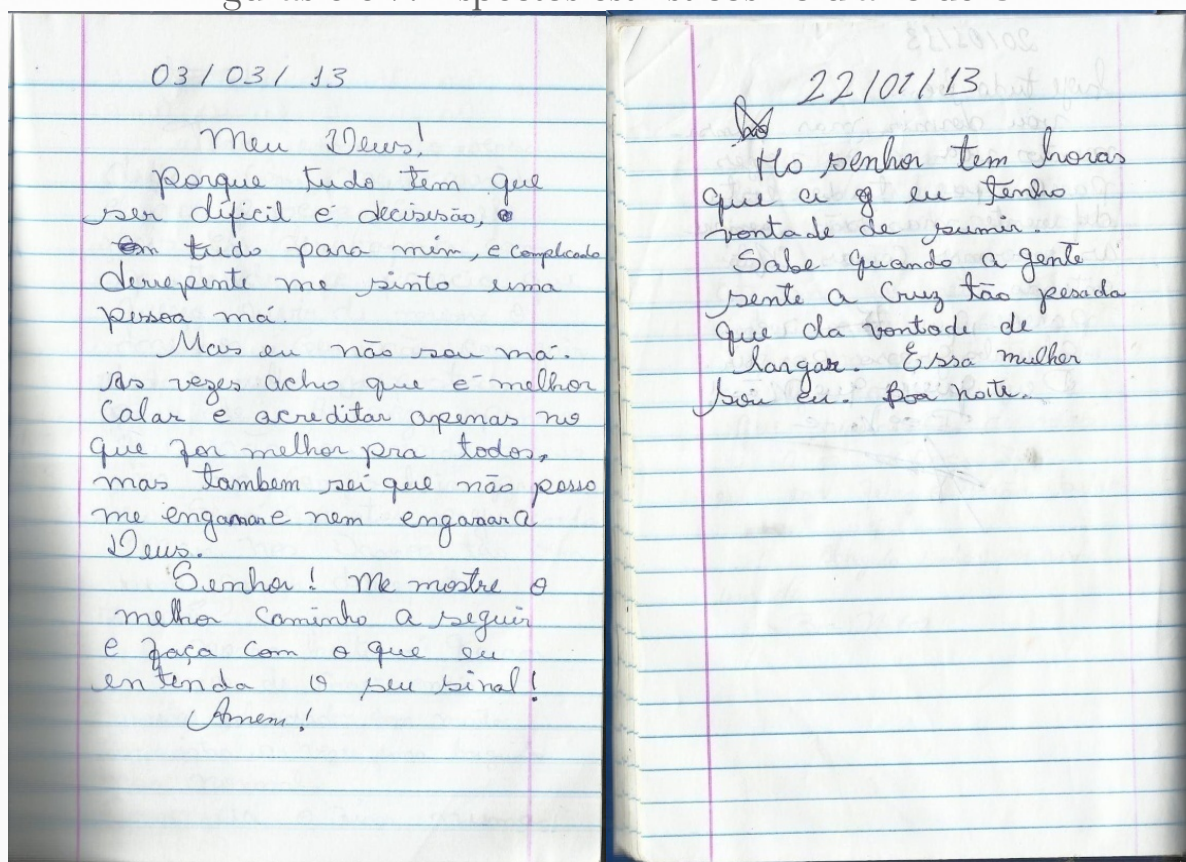 03/03/13
Meu Deus!
Porque tudo tem que
ser dificil é decisesão,
tudo para mim, e complicado
derrepente me sinto uma
pessoa má.
Mais eu não sou má.
As vezes acho que é melhor
Calar e acreditar apenas no
que for melhor pra todos,
mas tambem sei que não posso
me enganar e nem enganar a
Deus.
Senhor! Me mostre o
melhor Caminho a seguir
e faça com o que eu
entenda o seu sinal!
Amem!
22/01/13
Ho senhor tem horas
que a eu tenho
vontade de sumir.
Sabe quando a gente
sente a Cruz tão pesada
que da vontade de
largar. Essa mulher
sou eu. Boa noite.